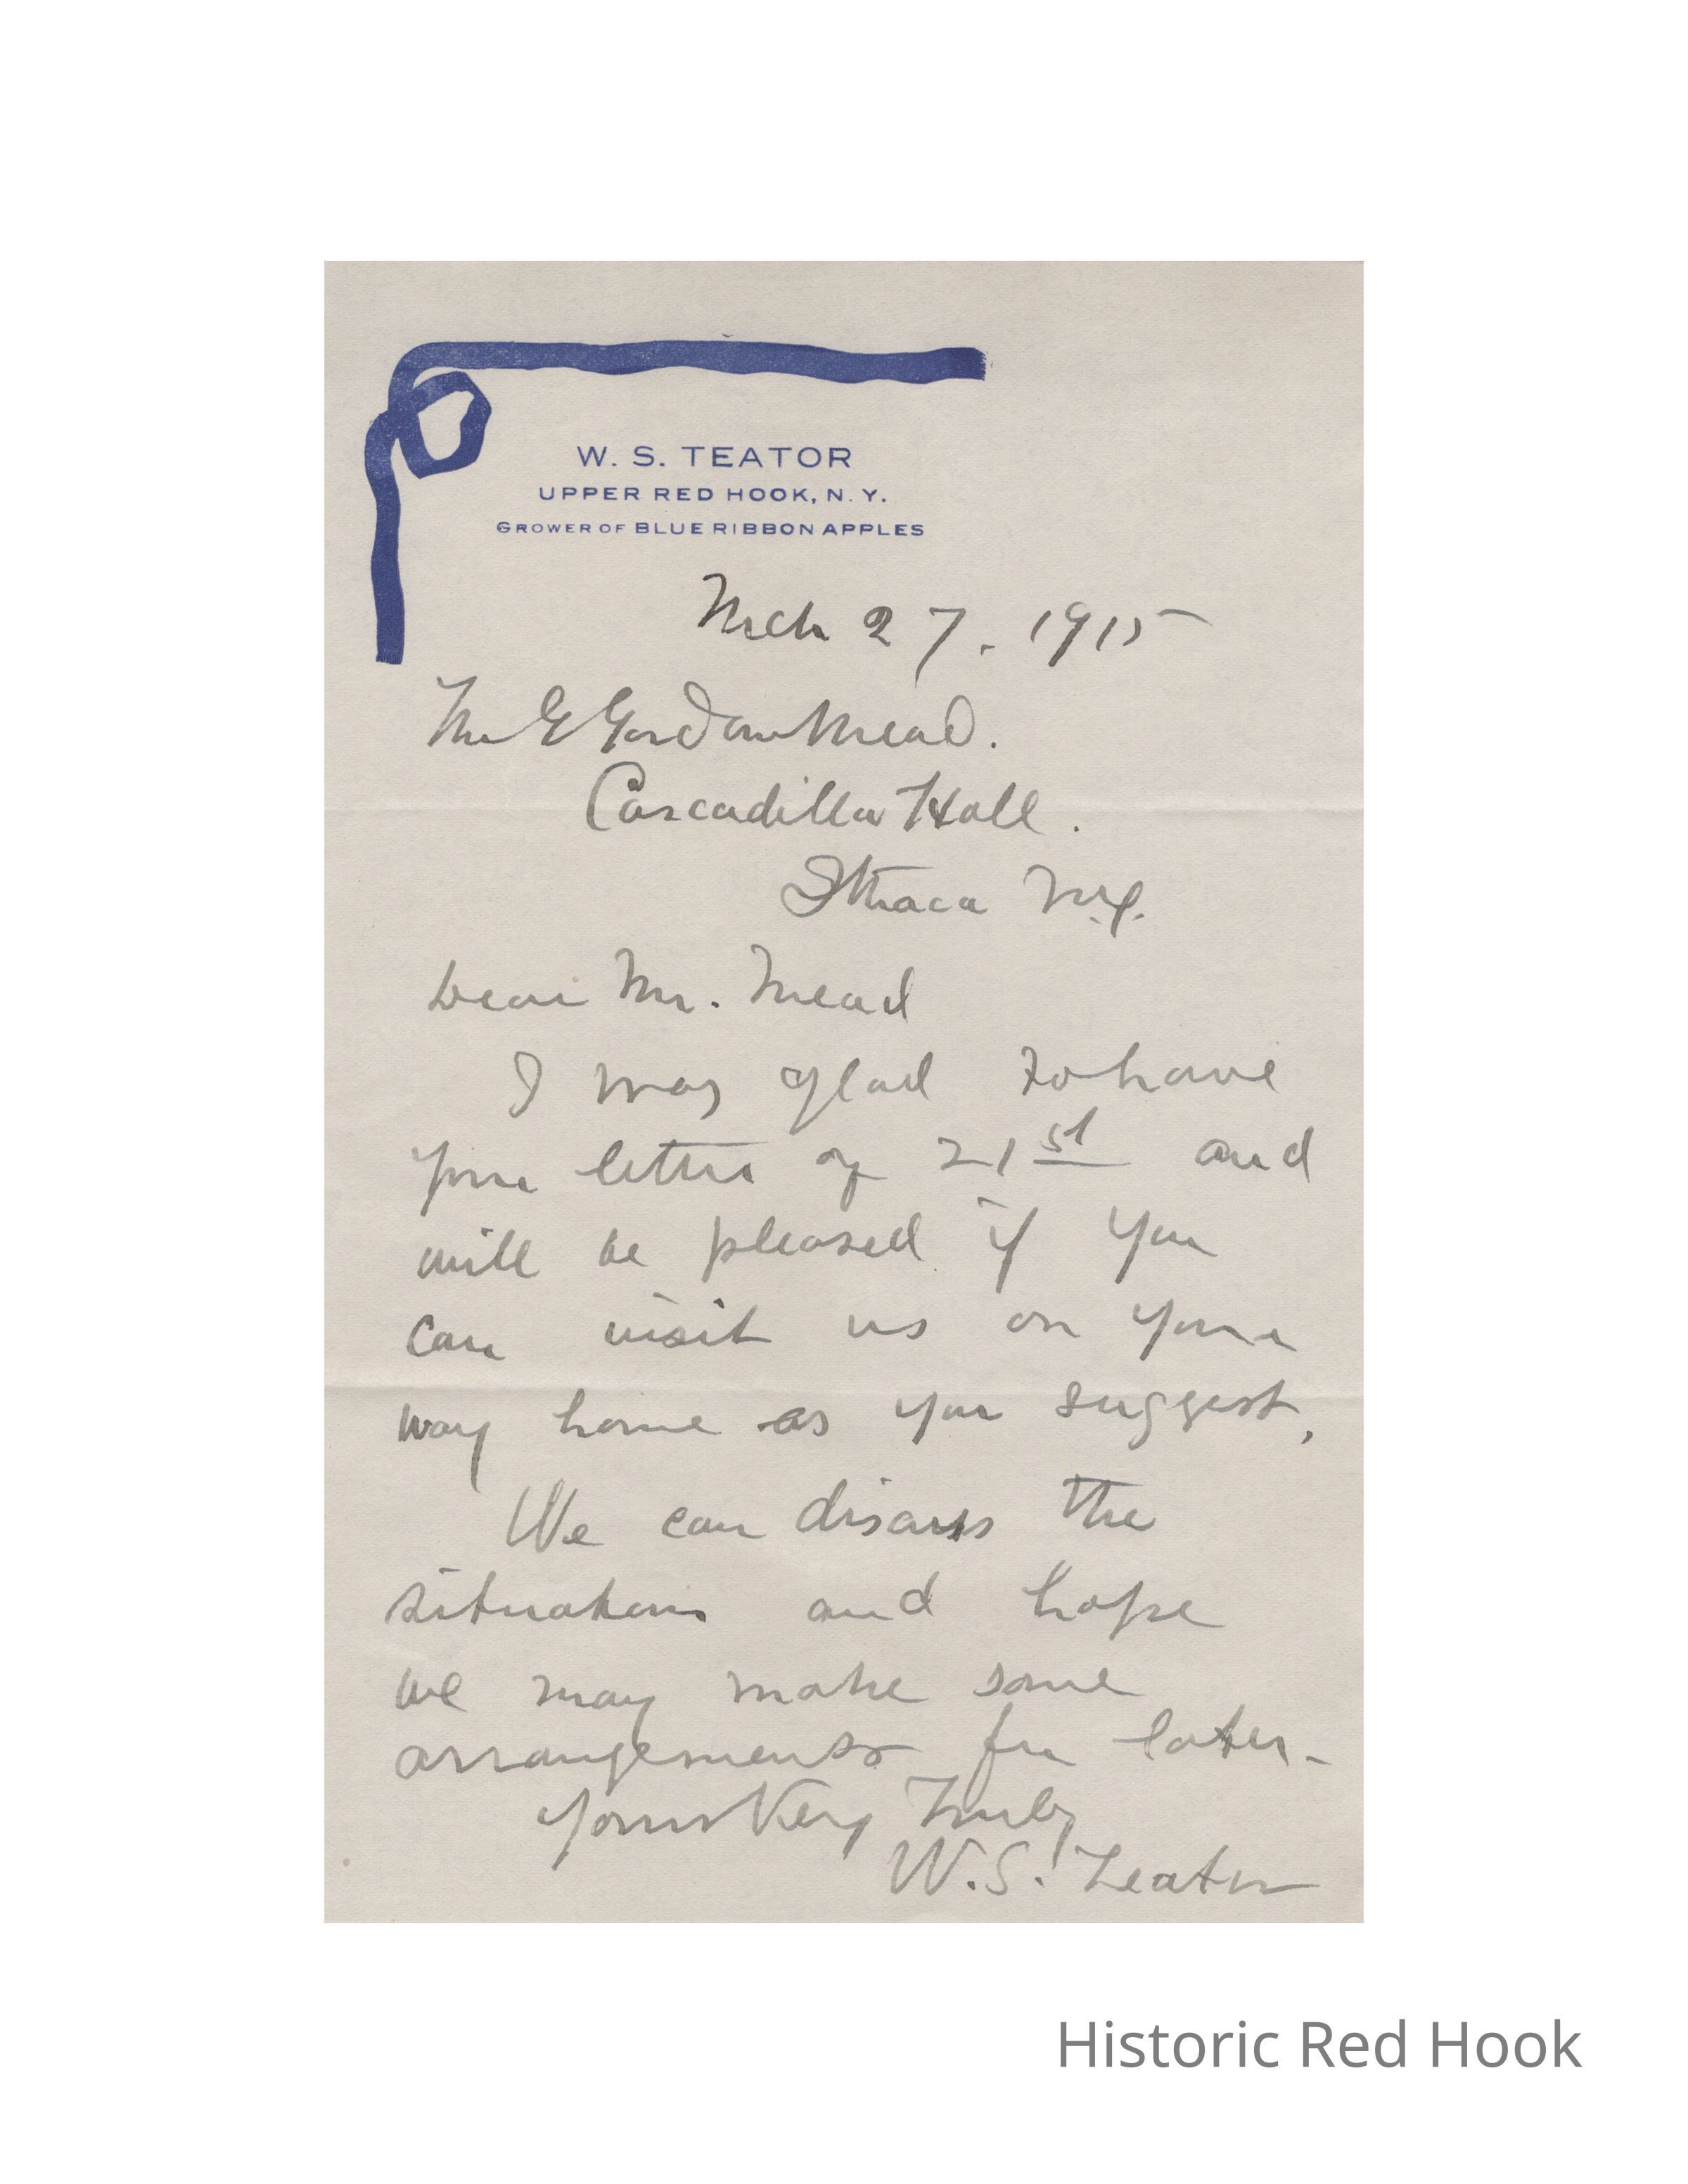 W. S. TEATOR
UPPER RED HOOK, N. Y.
GROWER OF BLUE RIBBON APPLES
Mch 27. 1915
Mr G Gordon Mead.
Cascadilla Hall.
Ithaca N.Y.
Dear Mr. Mead
I was glad to have
your letter of 21st and
will be pleased if you
can visit us on your
way home as you suggest,
We can discuss the
situation and hope
we may make some
arrangements for later-
Yours Very Truly
W.S. Teator
Historic Red Hook